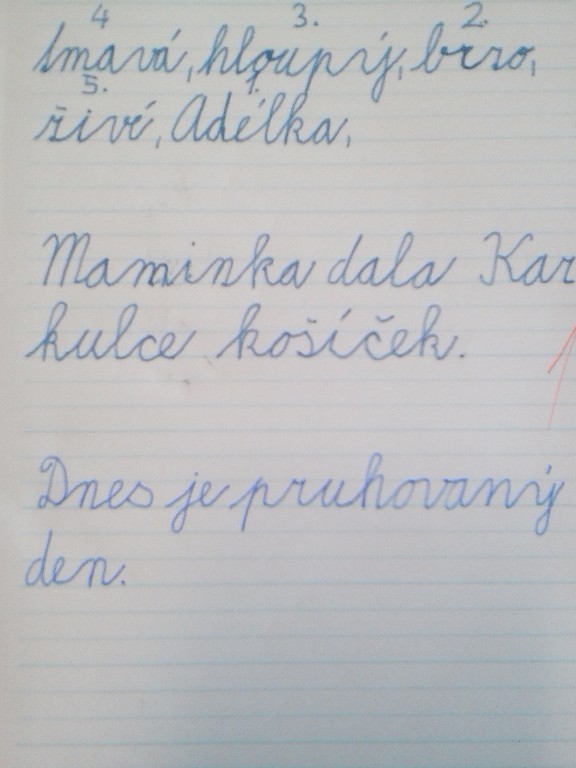 4 3. 2.
tmavá, hloupý, brzo,
5. 1.
živé, Adélka,
Maminka dala Kar
kulce košíček.
Dnes je pruhovaný
den.